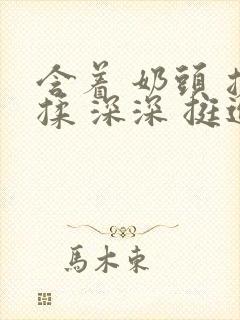 含着 奶頭
揉 深深 挺
馬木東